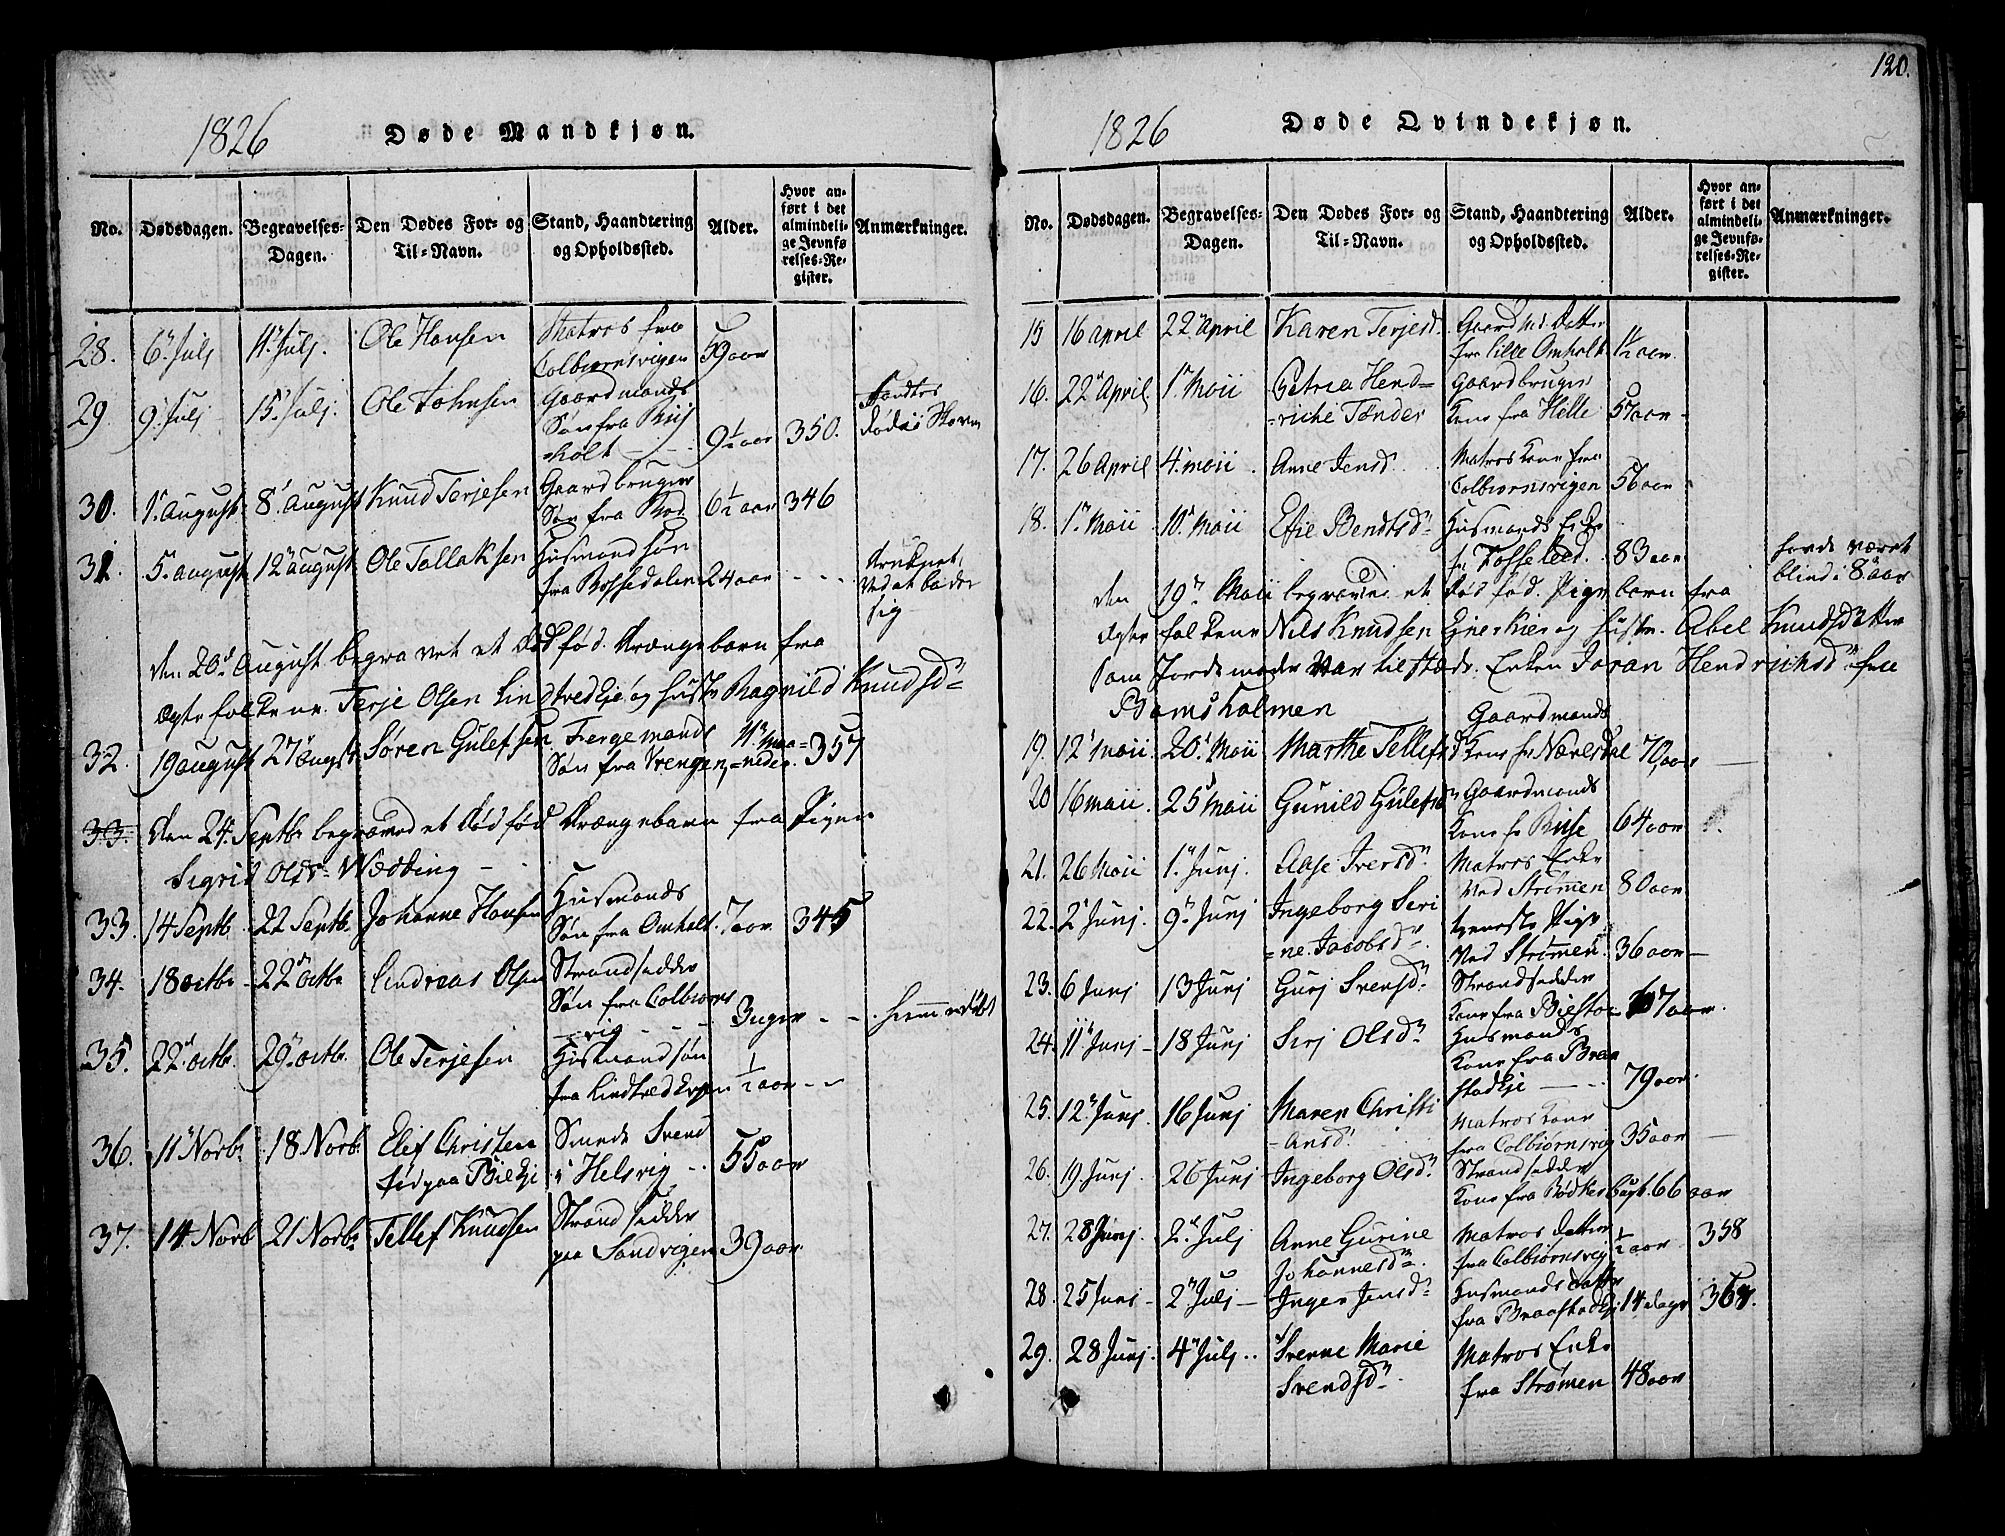 120.
1826
Døde Mandkjøn.
No. Dødsdagen. Begravelses-Dagen. Den Dødes For- og Til-Navn. Stand, Haandtering og Opholdssted. Alder. Hvor anført i det almindelige Jevnførelses-Register. Anmærkninger.
28. 6. Julj 11. Julj. Ole Hansen Matros fra
Colbiørnsvigen 59 aar
29 9. Julj 15. Julj. Ole Johnsen Gaardmands
Søn fra Riis
=holt 9½ aar 350. fandtes
død i Skoven
30. 1. August 8. August Knud Terjesen Gaardbruger
Søn fra 6½ aar 346
31. 5. august 12 august Ole Tallaksen Husmand søn
fra Bossedalen 24 aar - - - druknet
ved at bade
sig
den 20d August begravet et død fød. drængebarn fra
ægtefolkene Terje Olsen Lindtvedkje og hustr Ragnild Knudsd
32. 19 august 27 augst Søren Gulefsen Fergemands
Søn fra Vrengen 11 maa=
=neder. 357
33. den 24. Septbr begraved et død fød drængebarn fra Pigen
Sigrid Olsdr Wædding -
33. 14 Septb. 22 Septb. Johanne Hansen Husmands
Søn fra Omholt. 7 aar 345
34. 18 octbr 22 octbr Andreas Olsen Strandsidder
Søn fra Colbiørns
vig - - - 3 uger - - hiemmedøbt
35. 22 octbr. 29. octbr. Ole Terjesen Husmand søn
fra Lindtvedkjen ½ aar - -
36. 11 Novbr 18 Novbr. Elef Christen
fød paa Biekje Smeds Svend
i Helsvig - - 55 aar
37. 14. Novb 21 Novbr Tellef Knudsen Strandsidder
paa Sandvigen 39 aar
1826
Døde Qvindekjøn.
No. Dødsdagen. Begravelses-Dagen. Den Dødes For- og Til-Navn. Stand, Haandtering og Opholdssted. Alder. Hvor anført i det almindelige Jevnførelses-Register. Anmærkninger.
15 16 april 22 april Karen Terjesd. Gaardmd. datter
fra Lille Omholt 1½ aar
16. 22 April 1. Maii Petria Hend=
=riche Tønder Gaardbruger
Kone fra Helle 57 aar -
17. 26 April 4. maii Anne Jensd. Matros Kone fra
Colbiørnsvigen 56 aar
18. 1. Maii 10 Maii Efie Bendtsd. Husmands Enke
fr. Fosseleed. 83 aar havde været
blind i 8 aar
den 19. Maii begraven et død fød. Pige barn fra
ægtefolkene Nils Knudsen Enerkier og hustr. Abel Knudsdatter
som Jordemoder var tilstæde. Enken Joran Hendrichsd. fra
Bomsholmen
19. 12 maii 20. Maii Marthe Tellefsd Gaardmands
Kone fr Nærlsdal 70 aar
20 16 maii. 25 Maii Gunild Gulefsd Gaardmands
Kone fr Rise 64 aar
21. 26 Maii 1. Junj. Aase Iversd. Matros Enke
ved Strømen 80 aar
22. 2. Junj 9. Junj Ingeborg Seri
=ne Jacobsd. tjeneste Pige
ved Strømen 36 aar -
23. 6 Junj 13 Junj Gurj Svensd. Strandsidder
Kone fra Biestoe 67 aar.
24. 11 Junj - 18 Junj Sirj Olsd. Husmands
Kone fra Braa
stadkje - - 79 aar
25. 12. Junj 16 Junj Maren Christi
=ansd. Matros Kone
fra Colbiørnsvig 35 aar
26. 19. Junj. 26 Junj Ingeborg Olsd. Strandsidder
Kone fra Rødkebugt. 66 aar
27. 28 Junj. 2. Julj Anne Gurine
Johannesd. Matros datter
fra Colbiørnsvig ½ aar 358
28. 25 Junj - 2 Julj - Inger Jensd. Husmands datter
fra Braastadkje 14 dage 368.
29. 28 Junj. 4 Julj. Svenne Marie
Svendsd. Matros Enke
fra Strømen 48 aar